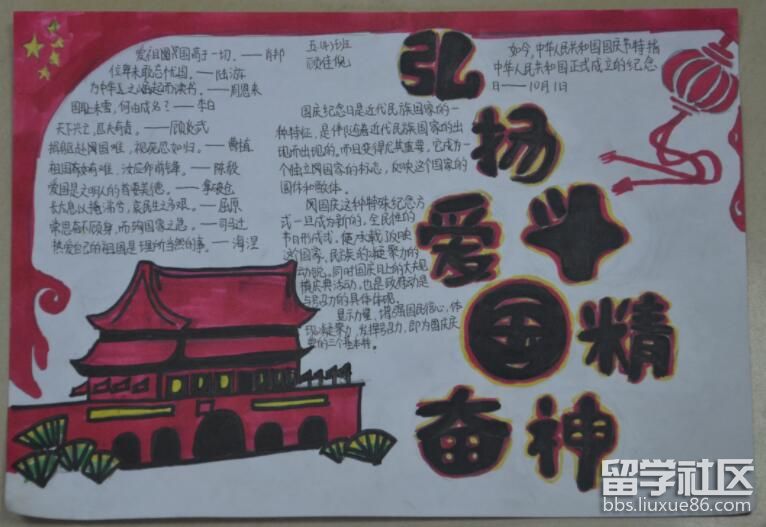 爱祖国高于一切。——肖邦
位卑未敢忘忧国。——陆游
为中华之崛起而读书。——周恩来
国耻未雪，何由成名？——李白
天下兴亡，匹夫有责。——顾炎武
捐躯赴国难，视死忽如归。——曹植
祖国如有难，汝应作前锋。——陈毅
爱国是文明人的首要美德。——拿破仑
长太息以掩涕兮，哀民生之多艰。——屈原
常思奋不顾身，而殉国家之急。——司马迁
热爱自己的祖国是理所当然的事。——海涅
五(4)班
顾佳倪
国庆纪念日是近代民族国家的一
种特征，是伴随着近代民族国家的出
现而出现的，而且变得尤其重要。它成为一
个独立国家的标志，反映这个国家的
国体和政体。
国庆这种特殊纪念方
式一旦成为新的、全民性的
节日形式，便承载了反映
这个国家、民族的凝聚力的
功能。同时国庆日上的大规
模庆典活动，也是政府动员
与号召力的具体体现。
显示力量、增强国民信心，体
现凝聚力，发挥号召力，即为国庆庆
典的三个基本特征。
如今，中华人民共和国国庆节特指
中华人民共和国正式成立的纪念
日——10月1日
弘
扬
爱
国
奋
斗
精
神
留学社区
bbs.liuxue86.com